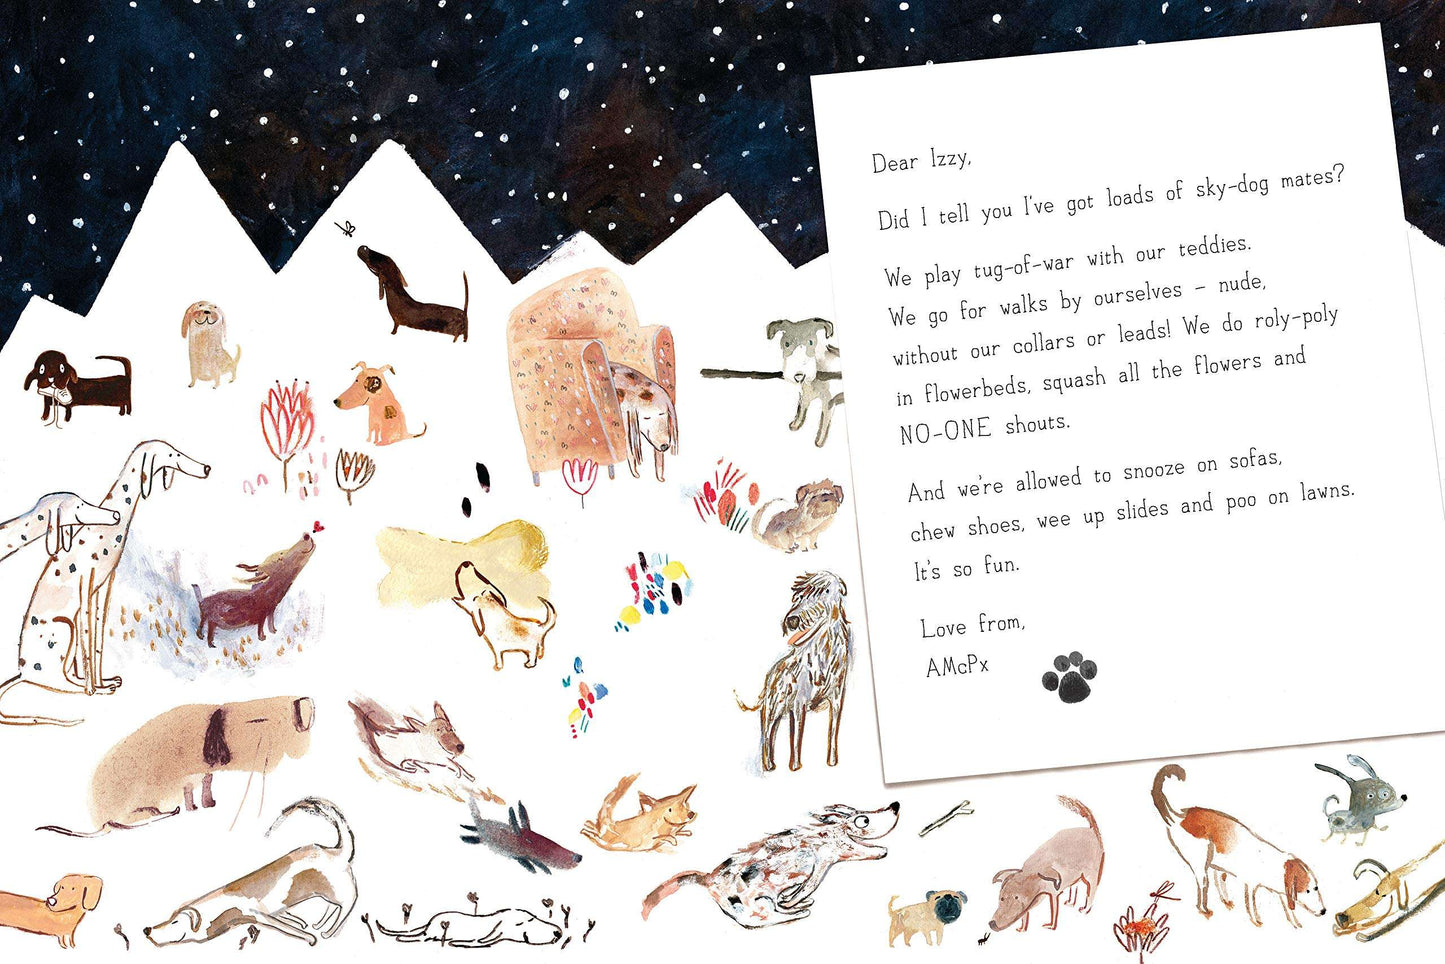 Dear Izzy,
Did I tell you I've got loads of sky-dog mates?
We play tug-of-war with our teddies.
We go for walks by ourselves – nude,
without our collars or leads! We do roly-poly
in flowerbeds, squash all the flowers and
NO-ONE shouts.
And we're allowed to snooze on sofas,
chew shoes, wee up slides and poo on lawns.
It's so fun.
Love from,
AMcPx